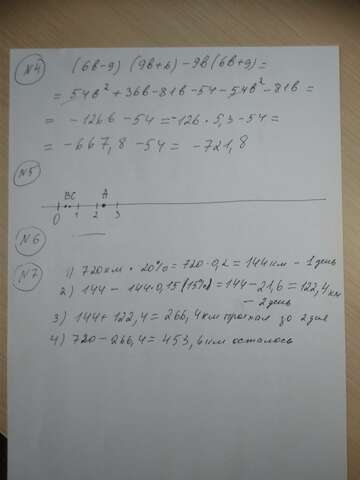 №4
(6в-9) (9в+6) - 9в(6в+9) =
= 54в² + 36в - 81в - 54 - 54в² - 81в =
= -126в - 54 = -126 · 5,3 - 54 =
= -667,8 - 54 = -721,8
№5
ВС А
0 1 2 3
№6
№7
1) 720км · 20% = 720 · 0,2 = 144км - 1 день
2) 144 - 144·0,15(15%) = 144 - 21,6 = 122,4 км
- 2 день
3) 144 + 122,4 = 266,4 км проехал за 2 дня
4) 720 - 266,4 = 453,6 км осталось